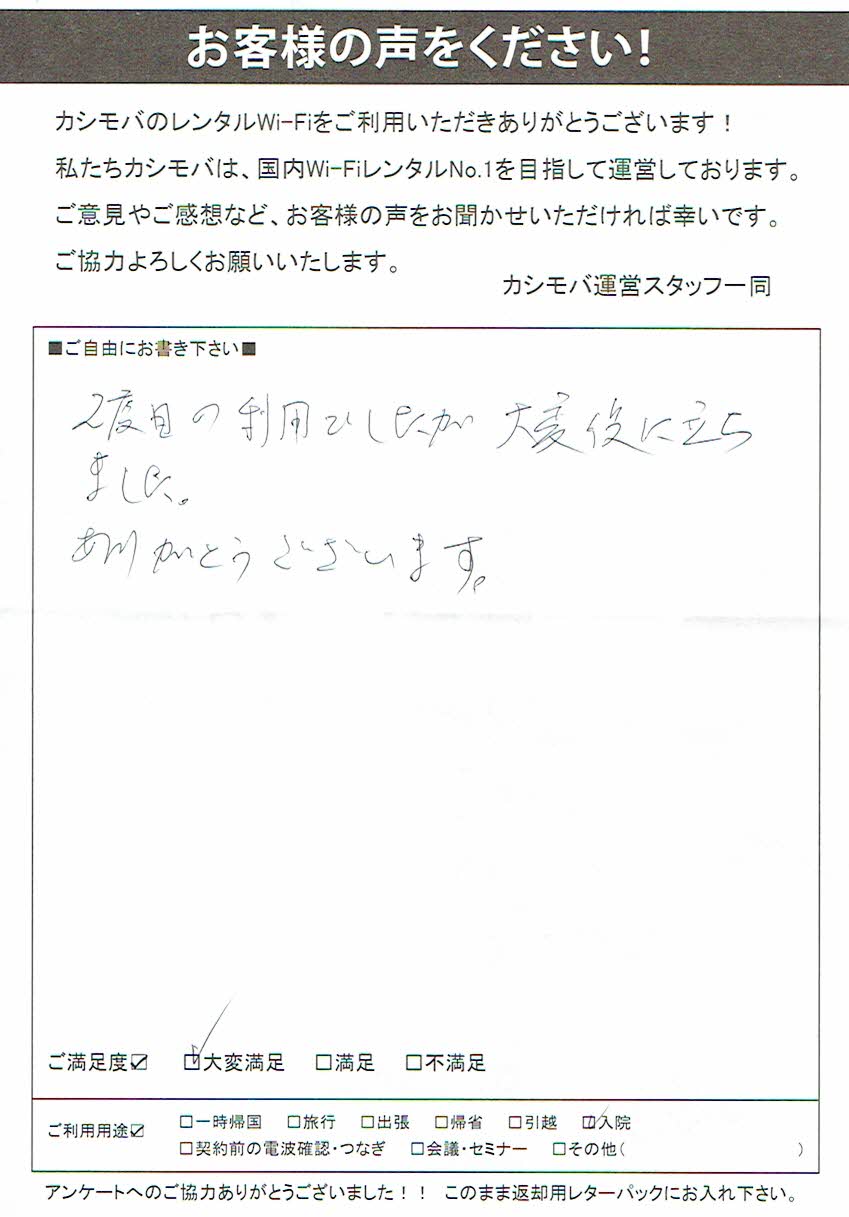 お客様の声をください!
カシモバのレンタルWi-Fiをご利用いただきありがとうございます！
私たちカシモバは、国内Wi-FiレンタルNo.1を目指して運営しております。
ご意見やご感想など、お客様の声をお聞かせいただければ幸いです。
ご協力よろしくお願いいたします。
カシモバ運営スタッフ一同
■ご自由にお書き下さい■
2度目の利用でしたが 大変役に立ち
ました。
ありがとうございます。
ご満足度☑ ☑大変満足 □満足 □不満足
ご利用用途☑ □一時帰国 □旅行 □出張 □帰省 □引越 ☑入院
□契約前の電波確認・つなぎ □会議・セミナー □その他( )
アンケートへのご協力ありがとうございました！！ このまま返却用レターパックにお入れ下さい。